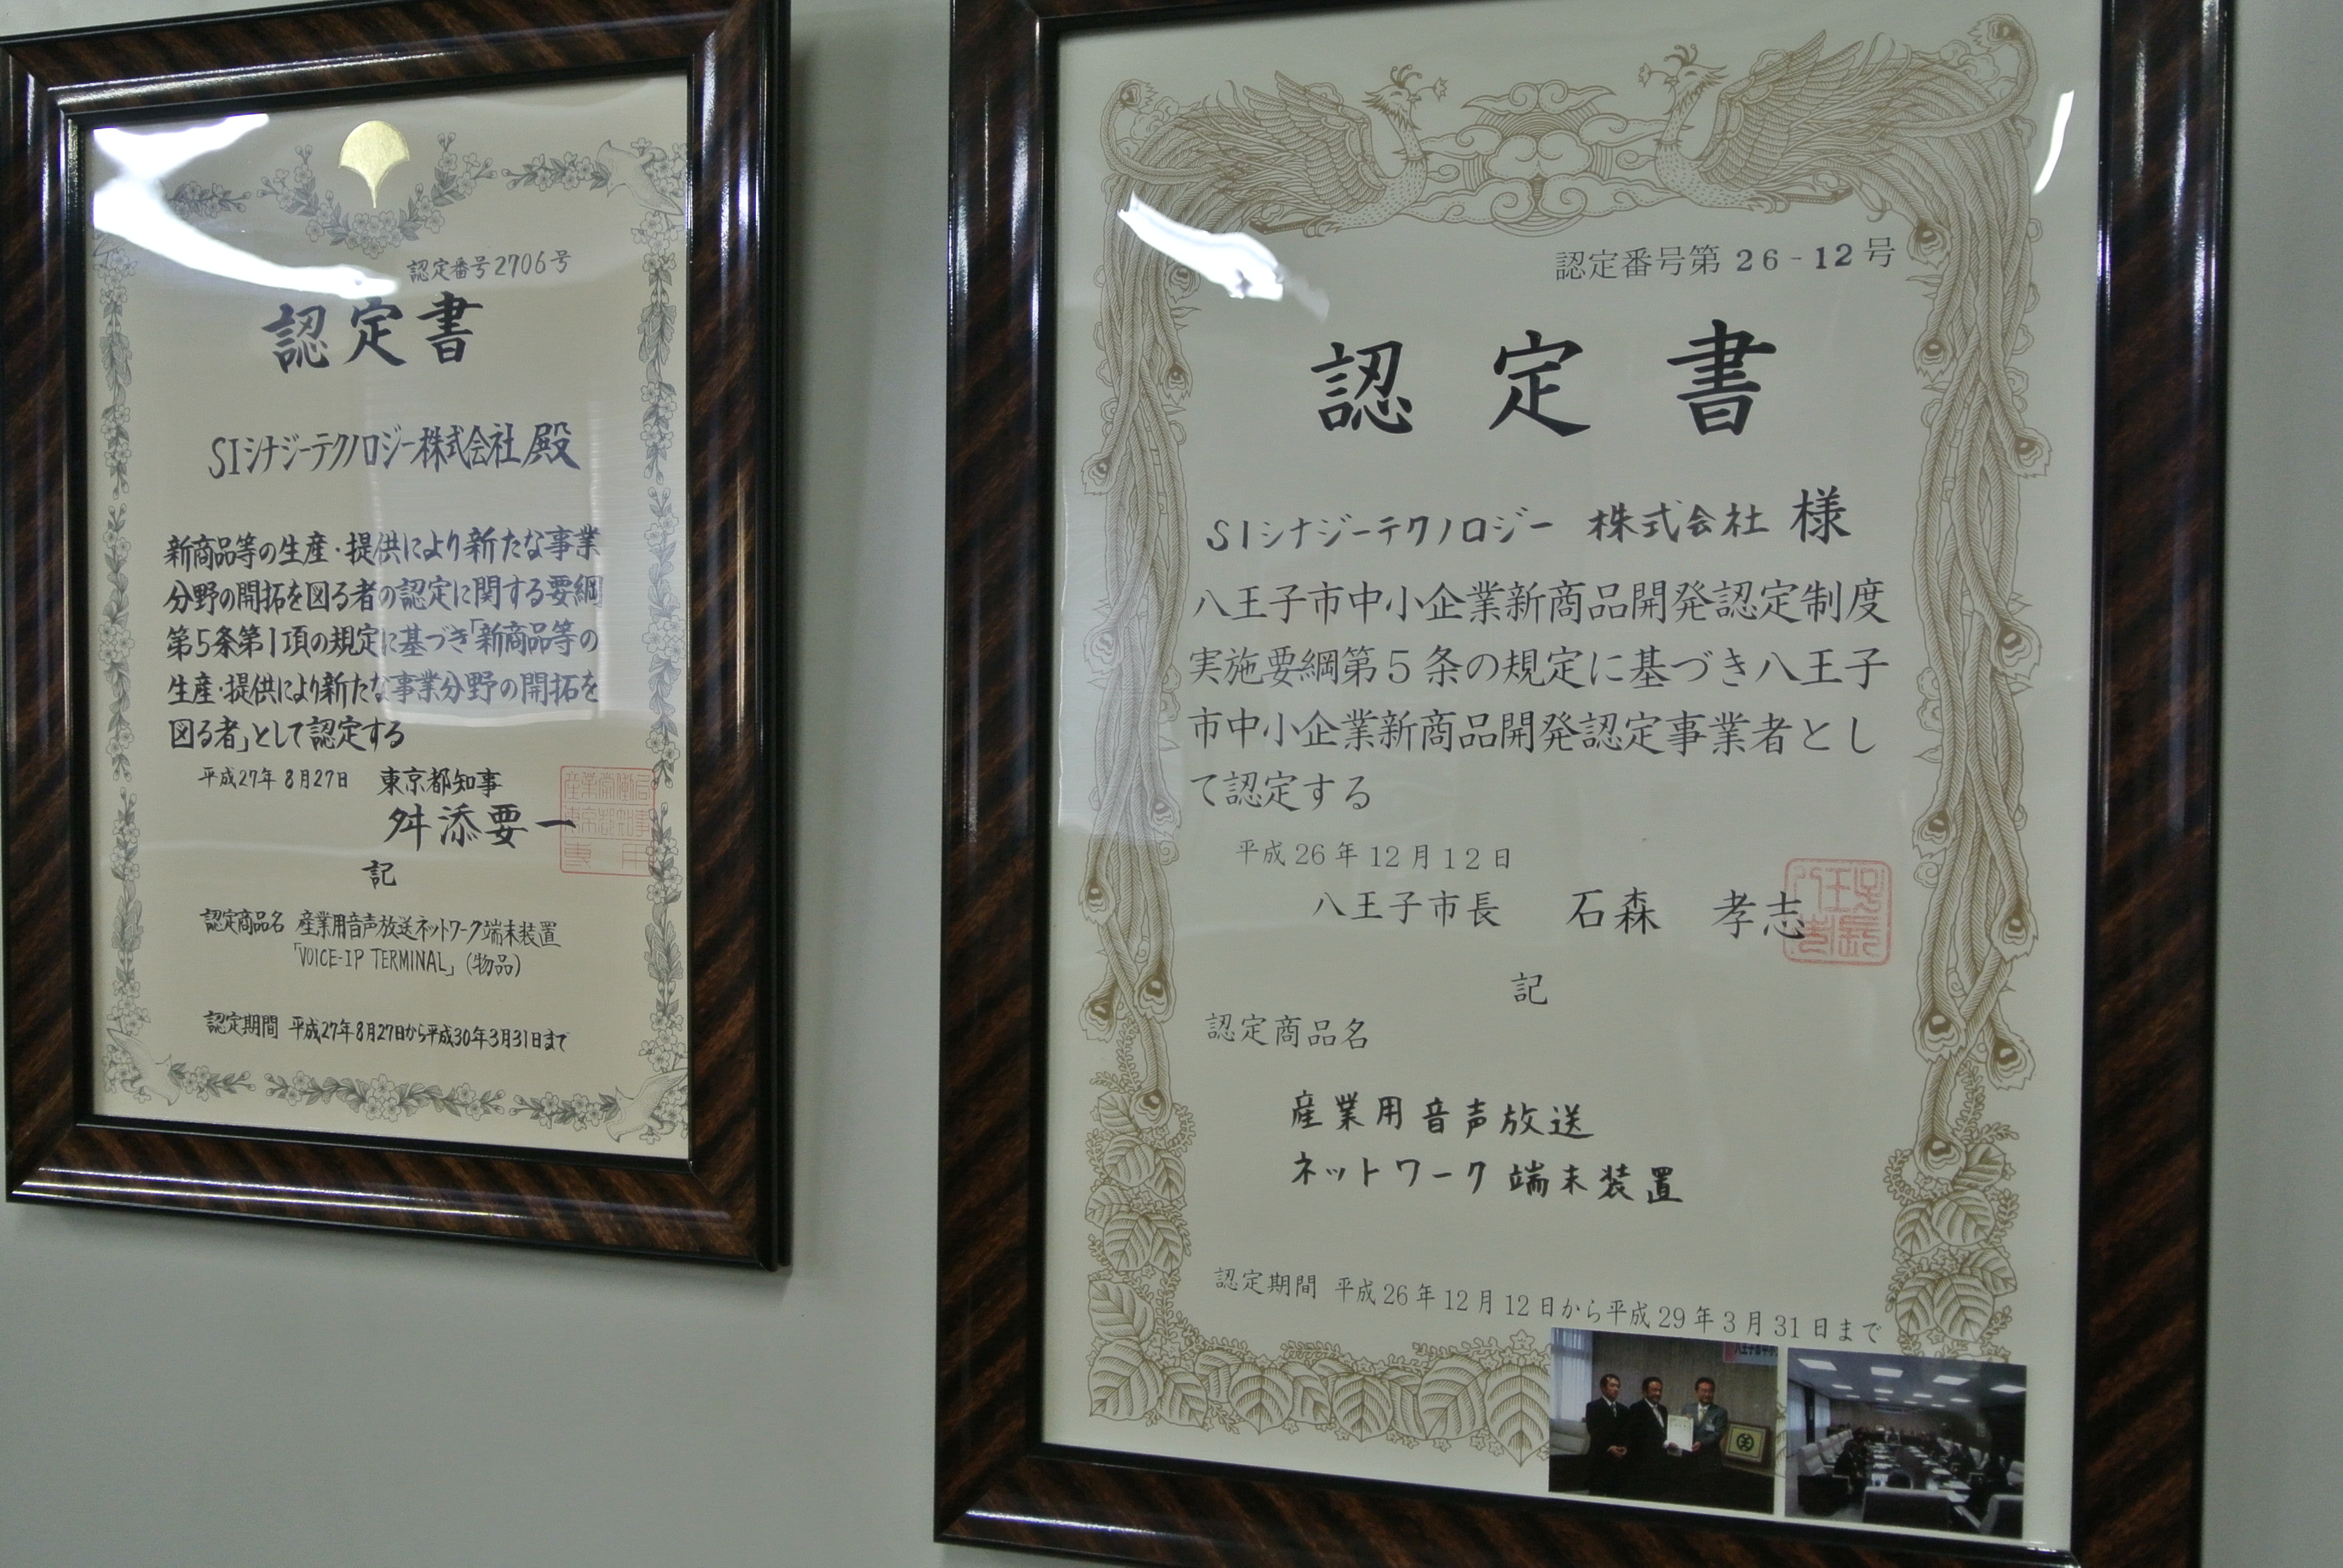 認定番号2706号
認定書
SIシナジーテクノロジー株式会社 殿
新商品等の生産・提供により新たな事業
分野の開拓を図る者の認定に関する要綱
第5条第1項の規定に基づき「新商品等の
生産・提供により新たな事業分野の開拓を
図る者」として認定する
平成27年8月27日 東京都知事
舛添要一
産業労働局
東京都知事
専用
記
認定商品名 産業用音声放送ネットワーク端末装置
「VOICE-IP TERMINAL」(物品)
認定期間 平成27年8月27日から平成30年3月31日まで
認定番号第 26-12号
認定書
SIシナジーテクノロジー 株式会社 様
八王子市中小企業新商品開発認定制度
実施要綱第5条の規定に基づき八王子
市中小企業新商品開発認定事業者とし
て認定する
平成26年12月12日
八王子市長 石森 孝志
記
認定商品名
産業用音声放送
ネットワーク端末装置
認定期間 平成26年12月12日から平成29年3月31日まで